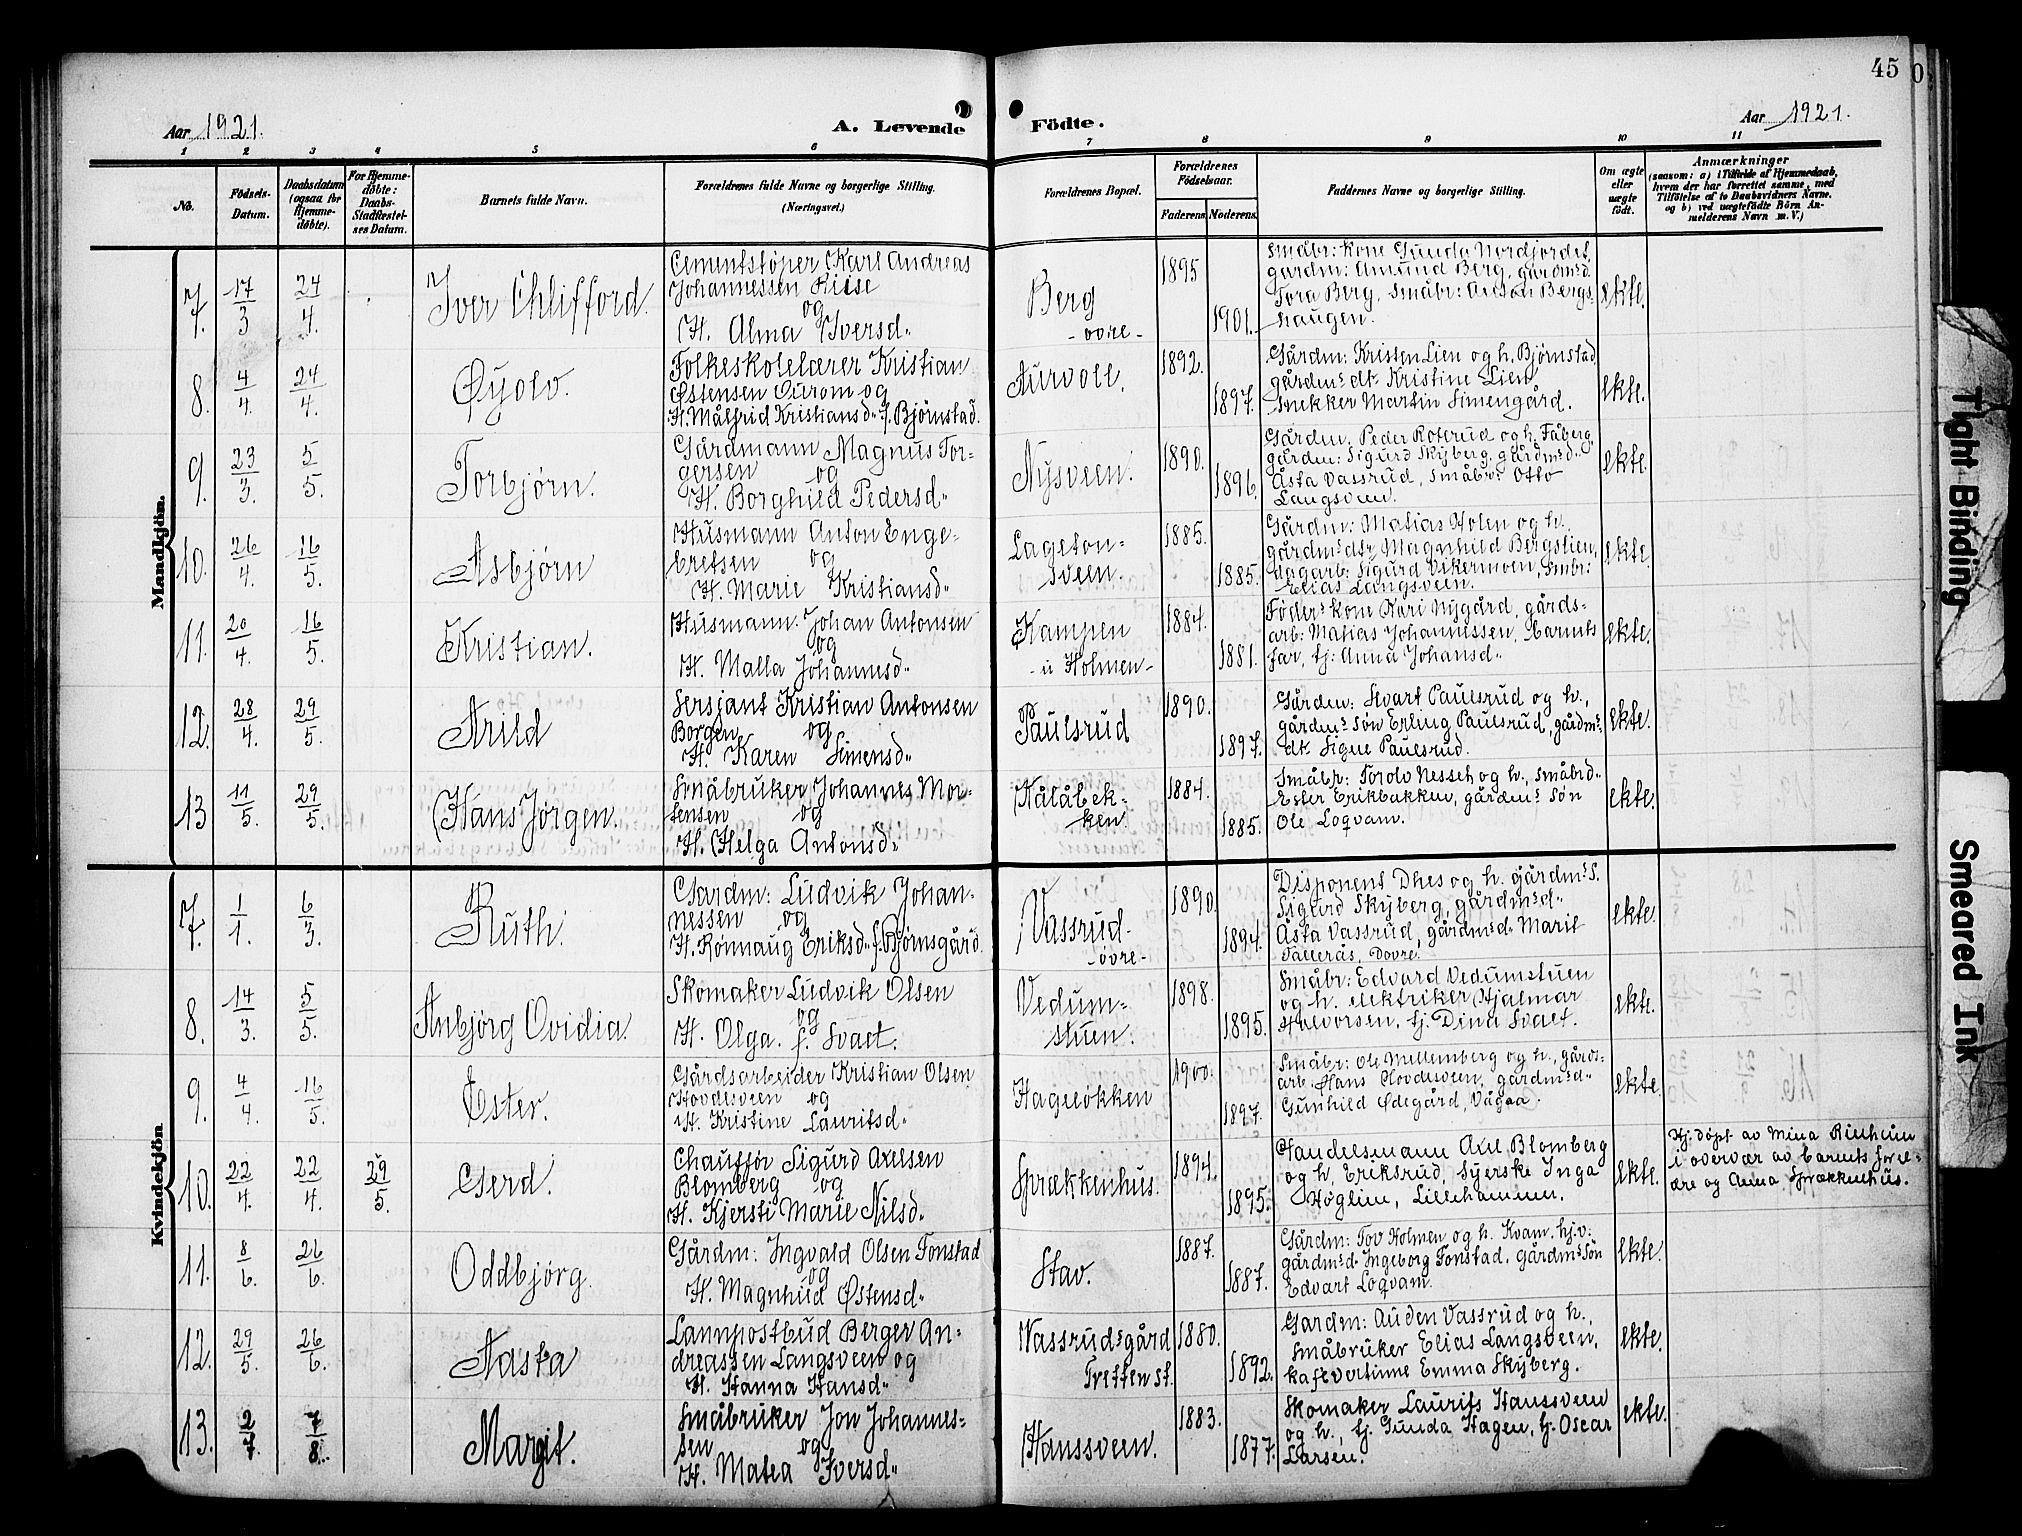 45
Aar 1921.
A. Levende Födte.
Aar 1921.
1 2 3 4 5 6 7 8 9 10 11
No.
Födsels-Datum.
Daabsdatum (ogsaa for Hjemme-döbte).
For Hjemme-döbte: Daabs-Stadfæstel-ses Datum.
Barnets fulde Navn.
Forældrenes fulde Navne og borgerlige Stilling.
(Næringsvei.)
Forældrenes Bopæl.
Forældrenes Födselsaar.
Faderens Moderens
Faddernes Navne og borgerlige Stilling.
Om ægte eller uægte födt.
Anmærkninger
(saasom: a) i Tilfælde af Hjemmedaab,
hvem der har forrettet samme, med
Tilföielse af to Daabsvidners Navne.
og b) ved uægtefödte Börn An-
melderens Navn m. V.)
Mandkjön.
7. 17/3 24/4. Iver Chlifford.
Cementstøper Karl Andreas
Johannessen Riise
og
H. Alma Iversd"
Berg
- øvre -
1895
1901.
Småbr: kone Gunda Nordjordet,
gårdm: Amund Berg, gårdmsd.
Tora Berg, småbr: Anton Bergs-
haugen.
ekte.
8. 4/4. 24/4. Øyolv.
Folkeskolelærer Kristian
Østensen Ourom og
H. Målfrid Kristiansd" f. Bjørnstad.
Aurvoll.
1892.
1897.
Gårdm: Kristen Lien og h. Bjørnstad
gårdms dt. Kristine Lien
snekker Martin Simengård.
ekte.
9. 23/3. 5/5. Torbjørn.
Gårdmann Magnus Tor-
gersen og
H. Borghild Pedersd"
Nysveen.
1890.
1896.
Gårdm: Peder Roterud og h. Fåberg,
gårdm: Sigurd Skyberg, gårdmsd"
Åsta Vassrud, småbr: Otto
Langsveen.
ekte.
10. 26/4. 16/5. Asbjørn
Husmann Anton Enge-
bretsen og
H. Marie Kristiansd"
Lageton-
sveen.
1885.
1885.
Gårdm: Matias Holen og h.,
gårdmsdtr Magnhild Bergstien,
dagarb: Sigurd Vikermoen, småbr:
Elias Langsveen.
ekte.
11. 20/4. 16/5. Kristian.
Husmann. Johan Antonsen
og
H. Malla Johannesd"
Kampen
- u Holmen -
1884.
1881.
Føder: kone Kari Nygård, gårds-
arb: Matias Johannessen, barnets
far, tj: Anna Johansd"
ekte.
12. 28/4. 29/5. Arild
Sersjant Kristian Antonsen
Borgen og
H. Karen Simensd"
Paulsrud
1890.
1897.
Gårdm: Svart Paulsrud og h.,
gårdms søn Erling Paulsrud, gårdms.
dt. Signe Paulsrud.
ekte.
13 11/5. 29/5. Hans Jørgen.
Småbruker Johannes Mor-
tensen og
H. Helga Antonsd"
Kålåbek-
ken.
1884.
1885.
Småbr: Torolv Nesset og h., småbrd"
Ester Erikbakken, gårdms søn
Ole Loqvam.
ekte.
Kvindekjön
7. 1/1. 6/3. Ruth.
Gardm: Ludvik Johan-
nessen og
H. Rønnaug Eriksd" f. Bjørnsgård.
Vassrud.
- øvre -
1890.
1894.
Disponent Dhes og h. gårdms S.
Sigurd Skyberg, gårdmsd"
Åsta Vassrud, gårdmsd" Marit
Tallerås, Dovre.
ekte.
8. 14/3. 5/5. Anbjørg Ovidia.
Skomaker Ludvik Olsen
og
H. Olga. f. Svaet.
Vedum-
stuen.
1898.
1895.
Småbr: Edvard Vedumstuen
og h. elektriker Hjalmar
Halvorsen, tj. Dina Svaet.
ekte.
9. 4/4. 16/5. Ester.
Gårdsarbeider Kristian Olsen
Hovdesveen og
H. Kristine Lauritsd"
Hageløkken
1900.
1897.
Småbr: Ole Mellemberg og h., gårds-
arb: Hans Hovdesveen, gårdmsd"
Gunhild Ødegård, Vågaa.
ekte.
10. 22/4. 22/4. 29/5. Gerd.
Chauffør Sigurd Axelsen
Blomberg og
H. Kjersti Marie Nilsd.
Sprækkenhus.
1894.
1895.
Handelsmann Axel Blomberg
og h. Eriksrud, Syerske Inga
Høglien, Lillehammer.
ekte.
Hj. døpt av Mina Rinheim
i overvær av barnets foræl-
dre og Anna Sprækkenhus.
11. 8/6. 26/6. Oddbjørg.
Gårdm: Ingvald Olsen Fonstad
og
H. Magnhild Østensd"
Stav.
1887.
1887.
Gårdm: Tov Holmen og h. Kvam. hj.v:
gårdmsd. Ingeborg Fonstad, gårdms søn
Edvart Loqvam.
ekte.
12. 29/5. 26/6. Aasta
Lannpostbud Berger An-
dreassen Langsveen og
H. Hanna Hansd"
Vassrudsgård
Tretten st.
1880.
1892.
Gardm: Auden Vassrud og h.,
småbruker Elias Langsveen,
kafevertinne Emma Skyberg.
ekte.
13. 2/7. 7/8. Margit.
Småbruker Jon Johannes-
sen og
H. Matea Iversd"
Hanssveen.
1883.
1877.
Skomaker Laurits Hanssveen
og h., tj. Gunda Hagen, tj. Oscar
Larsen.
ekte.
Tight Binding
Smeared Ink